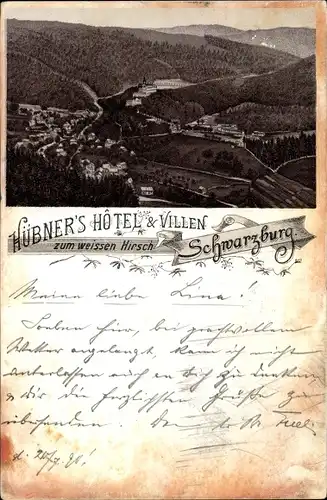 HÜBNER'S HÔTEL & VILLEN
zum weissen Hirsch
Schwarzburg.
Meine liebe Lina!
Soeben hier, bei prachtvollem
Wetter angelangt, kann ich nicht
unterlassen auch an Dich zu denken
& Dir die herzlichsten Grüße zu
übersenden.